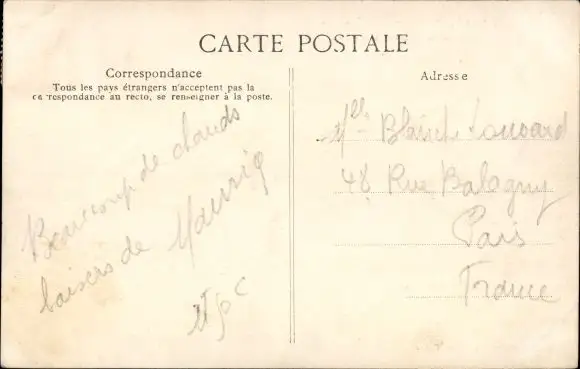 CARTE POSTALE
Correspondance
Tous les pays étrangers n'acceptent pas la
correspondance au recto, se renseigner à la poste.
Beaucoup de chauds
baisers de
Adresse
Mlle
48 Rue Balagny
Paris
France